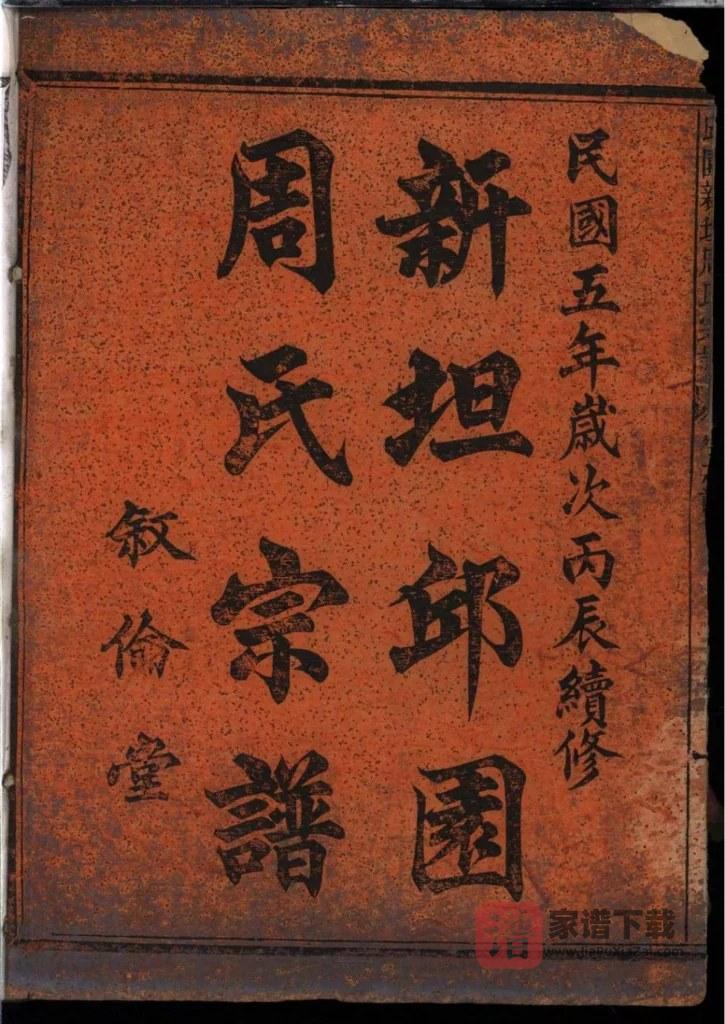 民國五年歲次丙辰續修
新坦邱園
周氏宗譜
敘倫堂
家谱下载